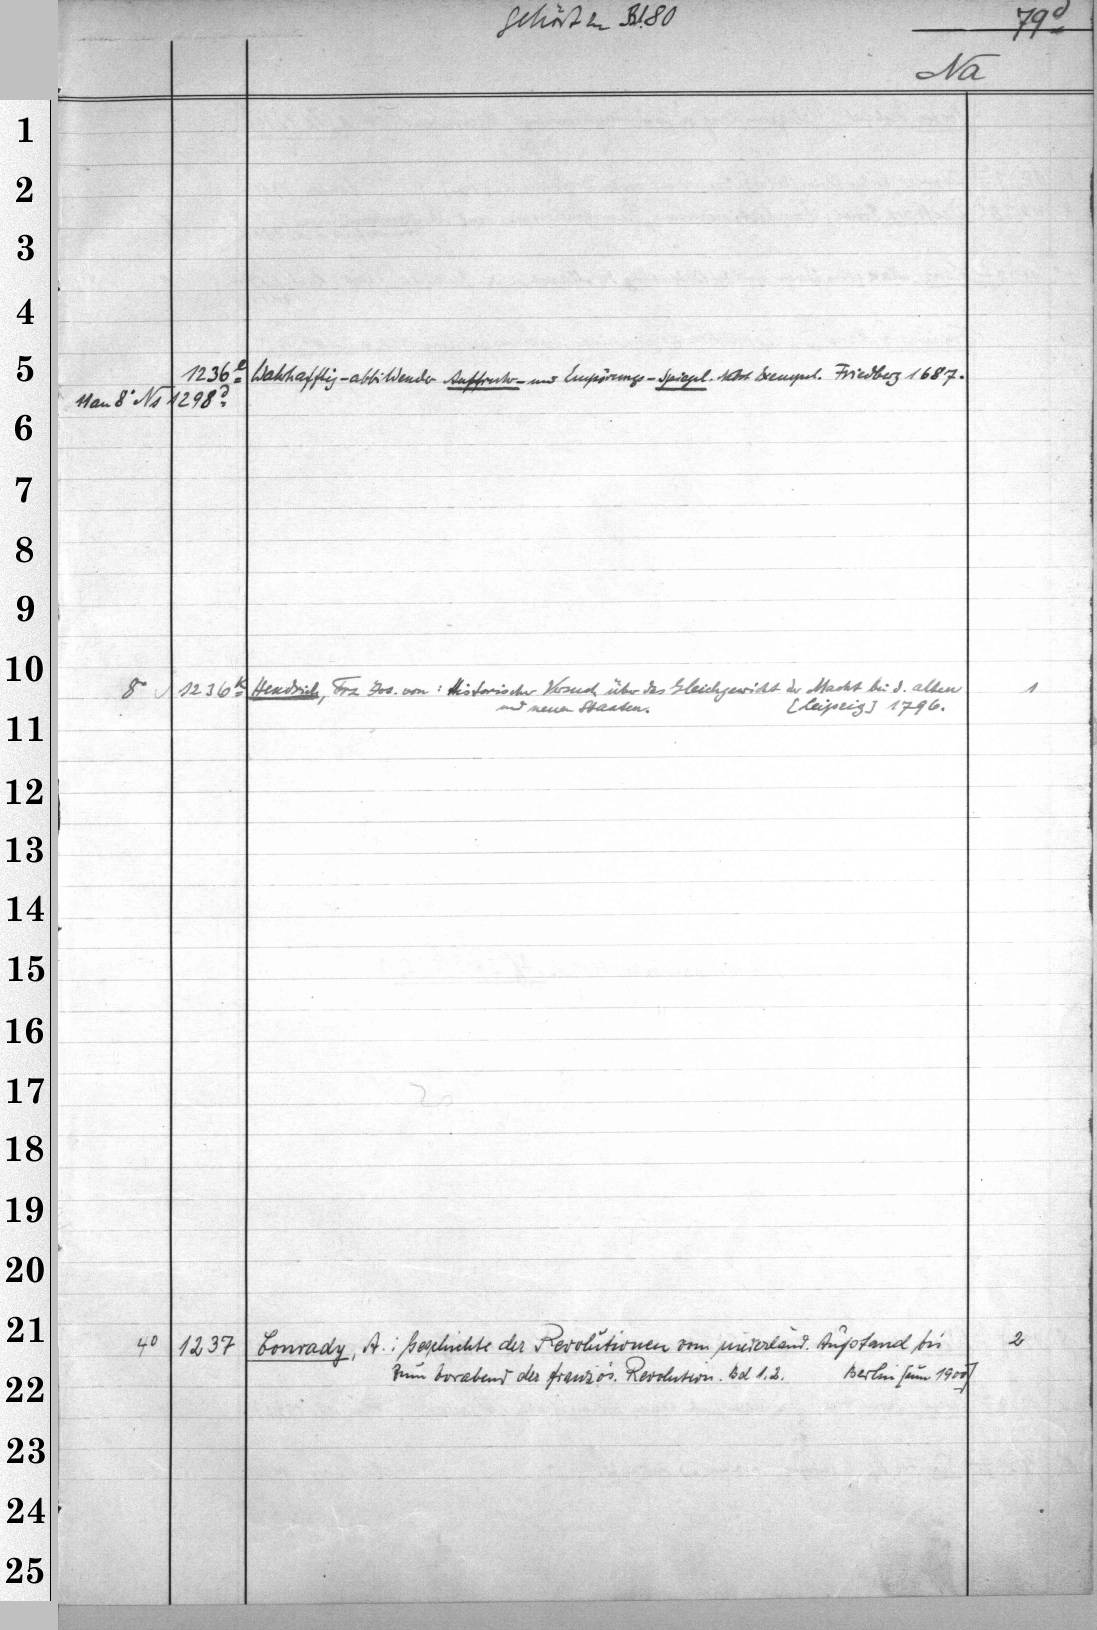 gehört zu Bl. 80
79d
Na
1
2
3
4
5
1236e Wahrhafftig-abbildender Auffruhr- und Empörungs-Spiegel. Nebst Exempel. Friedberg 1687.
8° Ns 1298d
6
7
8
9
10
8° 1236k Hendrich, Frz Jos. von: Historischer Versuch über das Gleichgewicht der Macht bei d. alten 1
und neuen Staaten. [Leipzig] 1796.
11
12
13
14
15
16
17
18
19
20
21
4° 1237 Conrady, A.: Geschichte der Revolutionen vom niederländ. Aufstand bis 2
zum Vorabend der französ. Revolution. Bd 1.2. Berlin [um 1900]
22
23
24
25